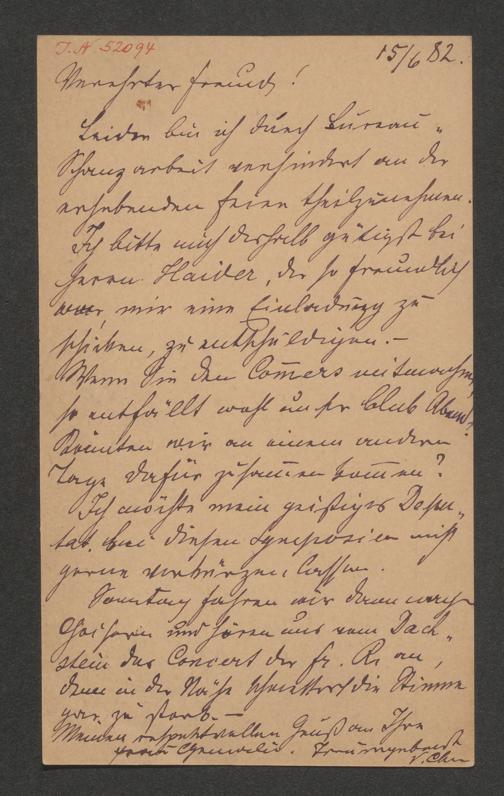 I.N. 52094
15/6 82.
Verehrter Freund!
Leider bin ich durch Bureau-
Schanzarbeit verhindert an der
erhebenden Feier theilzunehmen.
Ich bitte mich deshalb gütigst bei
Herrn Haider, der so freundlich
war, mir eine Einladung zu
schicken, zu entschuldigen. –
Wenn Sie den Com̄ers mitmachen,
so entfällt wohl unser Club Abend?
Könnten wir an einem andern
Tage dafür zusam̄en kom̄en?
Ich möchte mein geistiges Depu-
tat bei diesen Symposien nicht
gerne verkürzen lassen.
Sonntag fahren wir dann nach
Goisern und hören uns vom Dach-
stein das Concert der Fr. R. an,
denn in der Nähe schmettert die Stimme
gar zu stark. –
Meinen respektvollen Gruß an Ihre
Frau Gemalin.